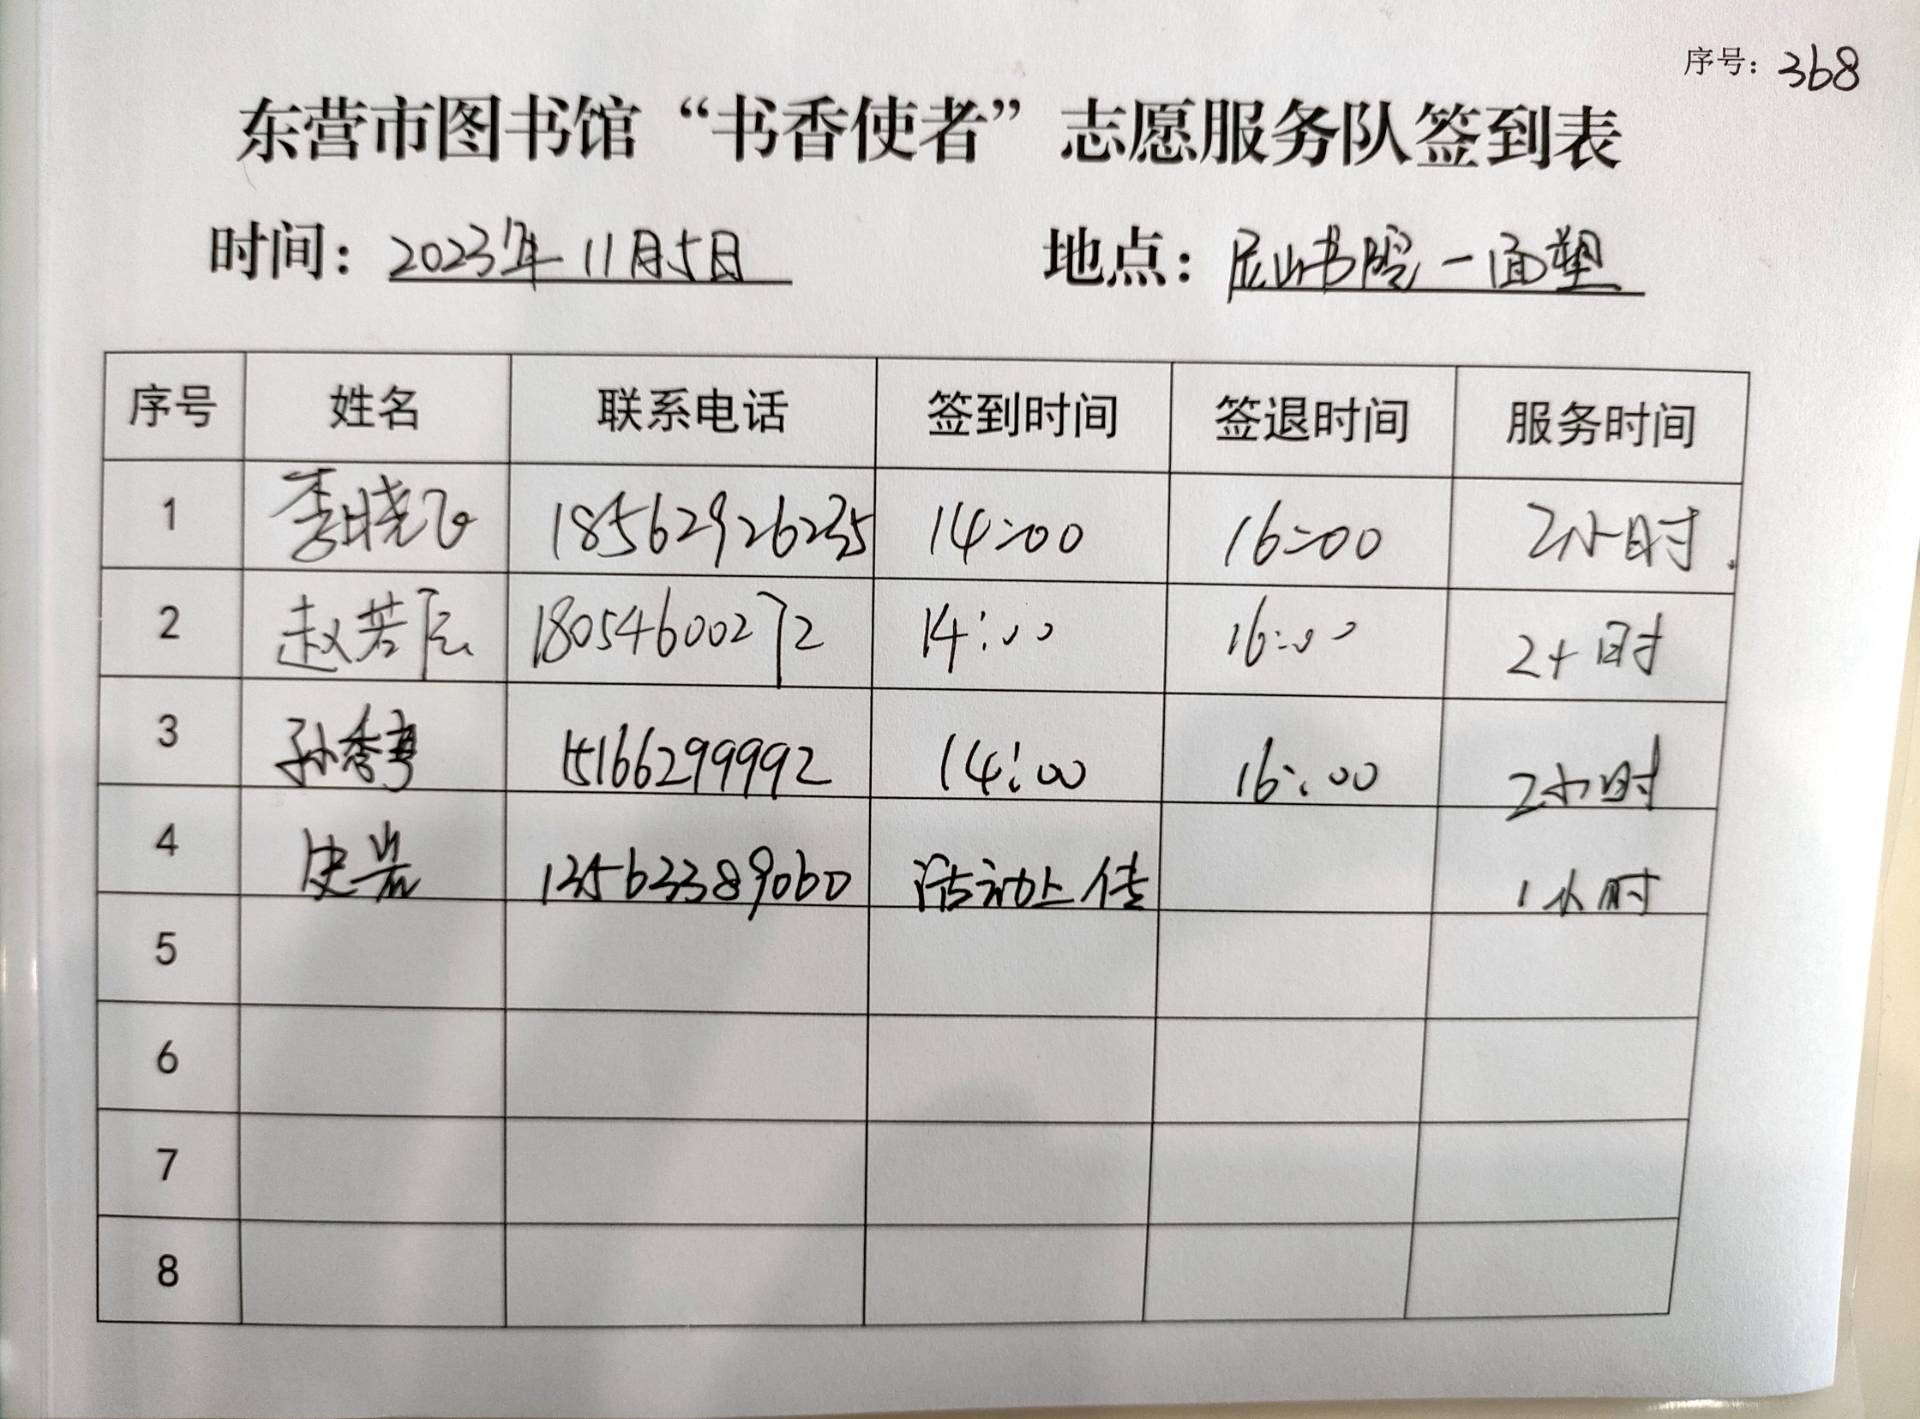 序号：368
东营市图书馆“书香使者”志愿服务队签到表
时间：2023年11月5日 地点：尼山书院一面塑
序号 姓名 联系电话 签到时间 签退时间 服务时间
1 李晓飞 18562926235 14:00 16:00 2小时.
2 赵若辰 18054600272 14:00 16:00 2小时
3 孙秀 15166299992 14:00 16:00 2小时
4 史岩 13563389060 活动上传 1小时
5
6
7
8